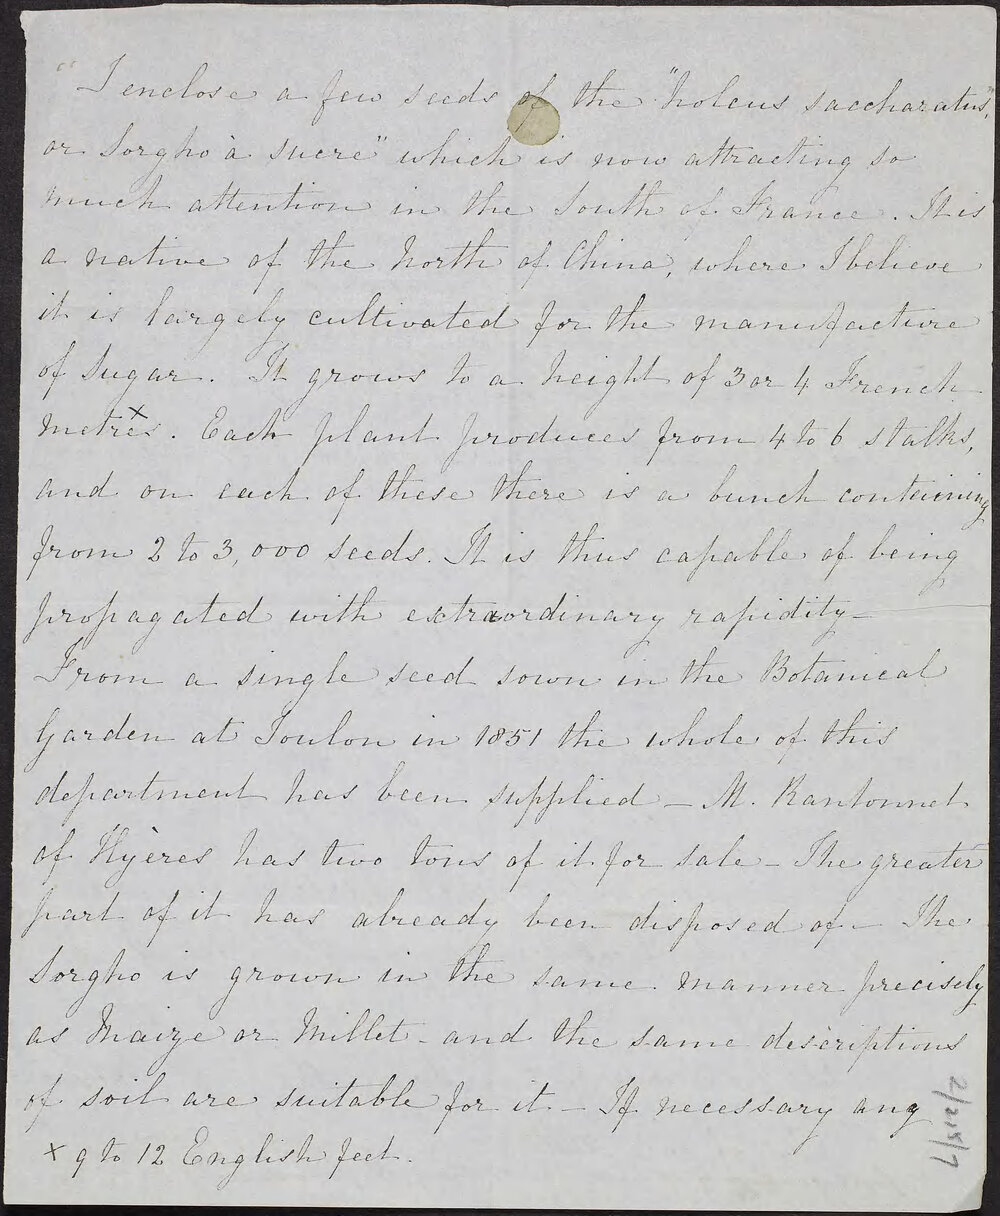 "I enclose a few seeds of the "Holcus saccharatus,
or Sorgho à sucre" which is now attracting so
much attention in the South of France. It is
a native of the North of China, where I believe
it is largely cultivated for the manufacture
of Sugar. It grows to a height of 3 or 4 French
metres x. Each plant produces from 4 to 6 stalks,
and on each of these there is a bunch containing
from 2 to 3,000 seeds. It is thus capable of being
propagated with extraordinary rapidity —
From a single seed sown in the Botanical
Garden at Toulon in 1851 the whole of this
department has been supplied — M. Rantonnet
of Hyères has two tons of it for sale — The greater
part of it has already been disposed of — The
Sorgho is grown in the same manner precisely
as Maize or Millet — and the same descriptions
of soil are suitable for it — If necessary any
x 9 to 12 English feet.